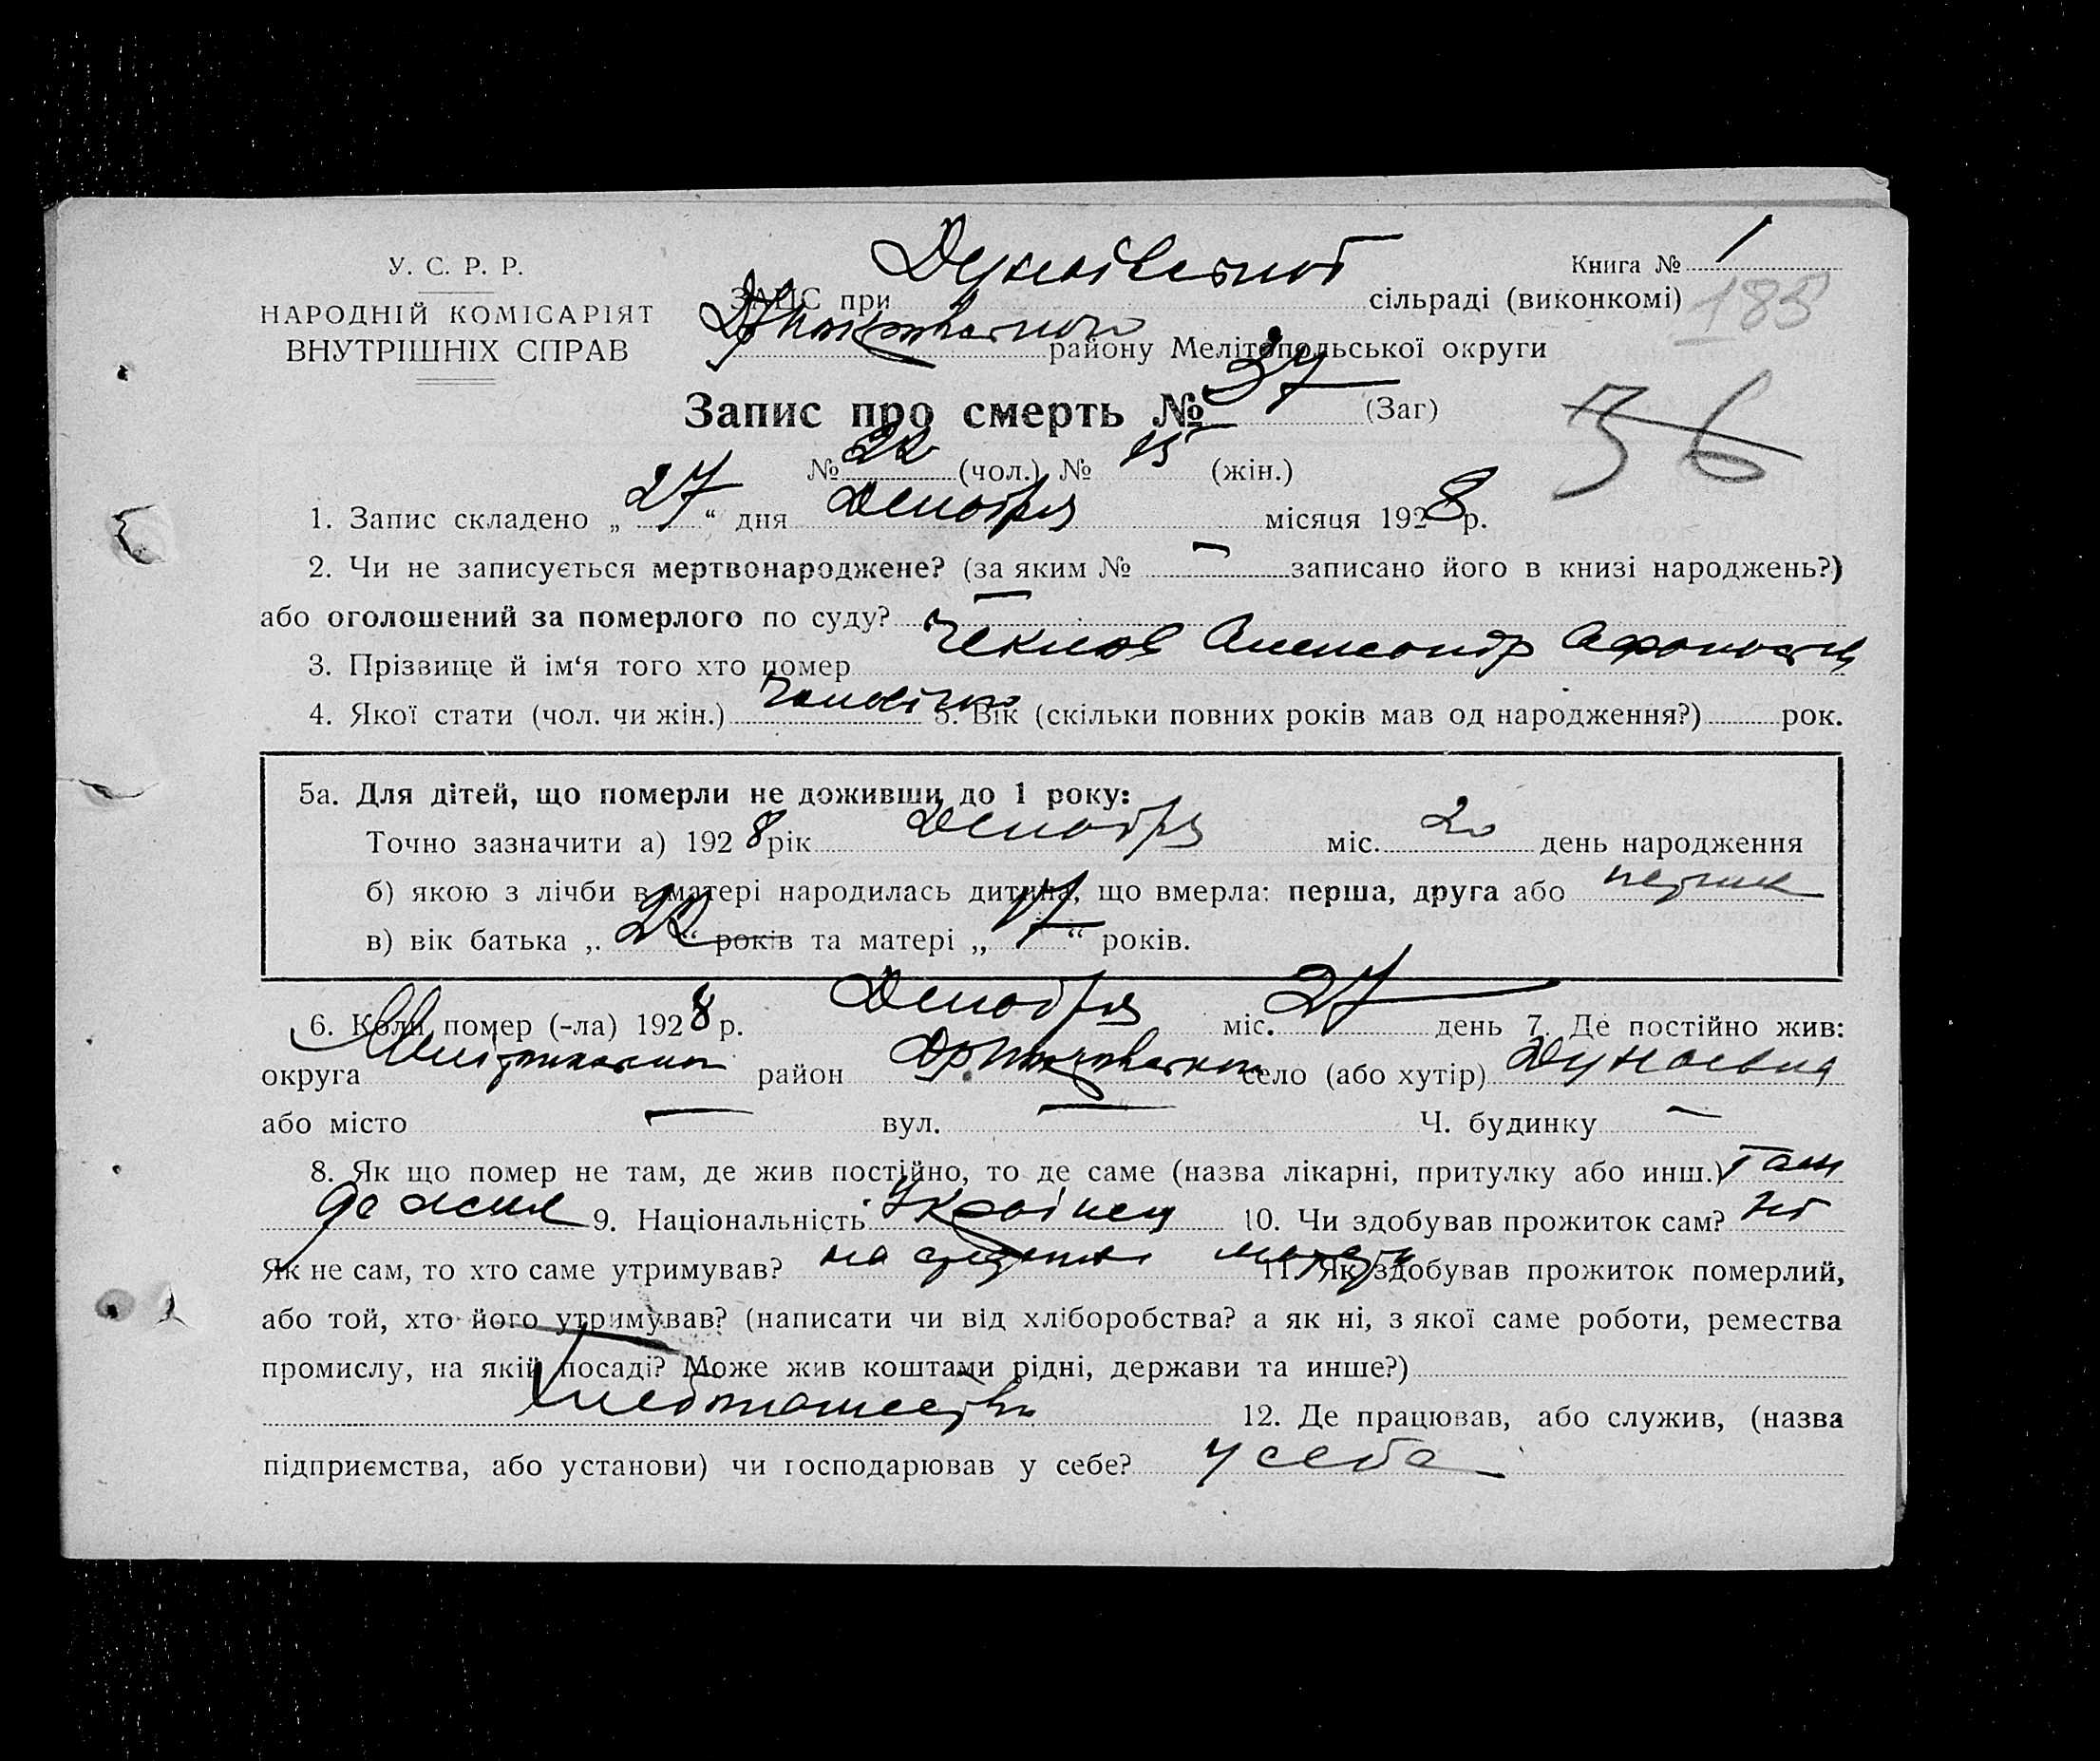 У. С. Р. Р.
НАРОДНІЙ КОМІСАРІЯТ
ВНУТРІШНІХ СПРАВ
Книга № 1
ЗАПИС при Дунаївської сільраді (виконкомі) 185
району Мелітопольської округи
Запис про смерть № 37 (Заг) 36
№ 22 (чол.) № 15 (жін.)
1. Запис складено „ 27 “ дня Декабря місяця 1928 р.
2. Чи не записується мертвонароджене? (за яким № — записано його в книзі народжень?)
або оголошений за померлого по суду? —
3. Прізвище й ім‘я того хто помер Чекмов Александр
4. Якої стати (чол. чи жін.) чоловічої 5. Вік (скільки повних років мав од народження?) рок.
5а. Для дітей, що померли не доживши до 1 року:
Точно зазначити а) 1928 рік Декабря міс. 20 день народження
б) якою з лічби в матері народилась дитина, що вмерла: перша, друга або
в) вік батька „ 22 “ років та матері „ 17 “ років.
6. Коли помер (-ла) 1928 р. Декабря міс. 27 день 7. Де постійно жив:
округа район село (або хутір) Дунаевка
або місто — вул. — Ч. будинку —
8. Як що помер не там, де жив постійно, то де саме (назва лікарні, притулку або инш.) там
де жив 9. Національність Українец 10. Чи здобував прожиток сам? ні
Як не сам, то хто саме утримував? на 11. Як здобував прожиток померлий,
або той, хто його утримував? (написати чи від хліборобства? а як ні, з якої саме роботи, ремества
промислу, на якій посаді? Може жив коштами рідні, держави та инше?)
12. Де працював, або служив, (назва
підприємства, або установи) чи господарював у себе? у себе